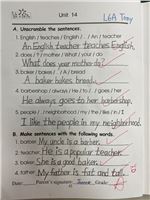 Unit 14
L6A Tony
A. Unscramble the sentences.
1. English / teaches / English / . / An / teacher
An English teacher teaches English.
2. does / ? / mother / What / your / do
What does your mother do?
3. baker / bakes / . / A / bread
A baker bakes bread.
4. barbershop. / always / He / to / goes / her
He always goes to her barbershop.
5. people / neighborhood / my / the / like / in / I
I like the people in my neighborhood.
B. Make sentences with the following words.
1. barber My uncle is a barber.
2. teacher He is a popular teacher.
3. baker She is a good baker.
4. father My father is fat and tall.
Date: Parent's signature: Grade: